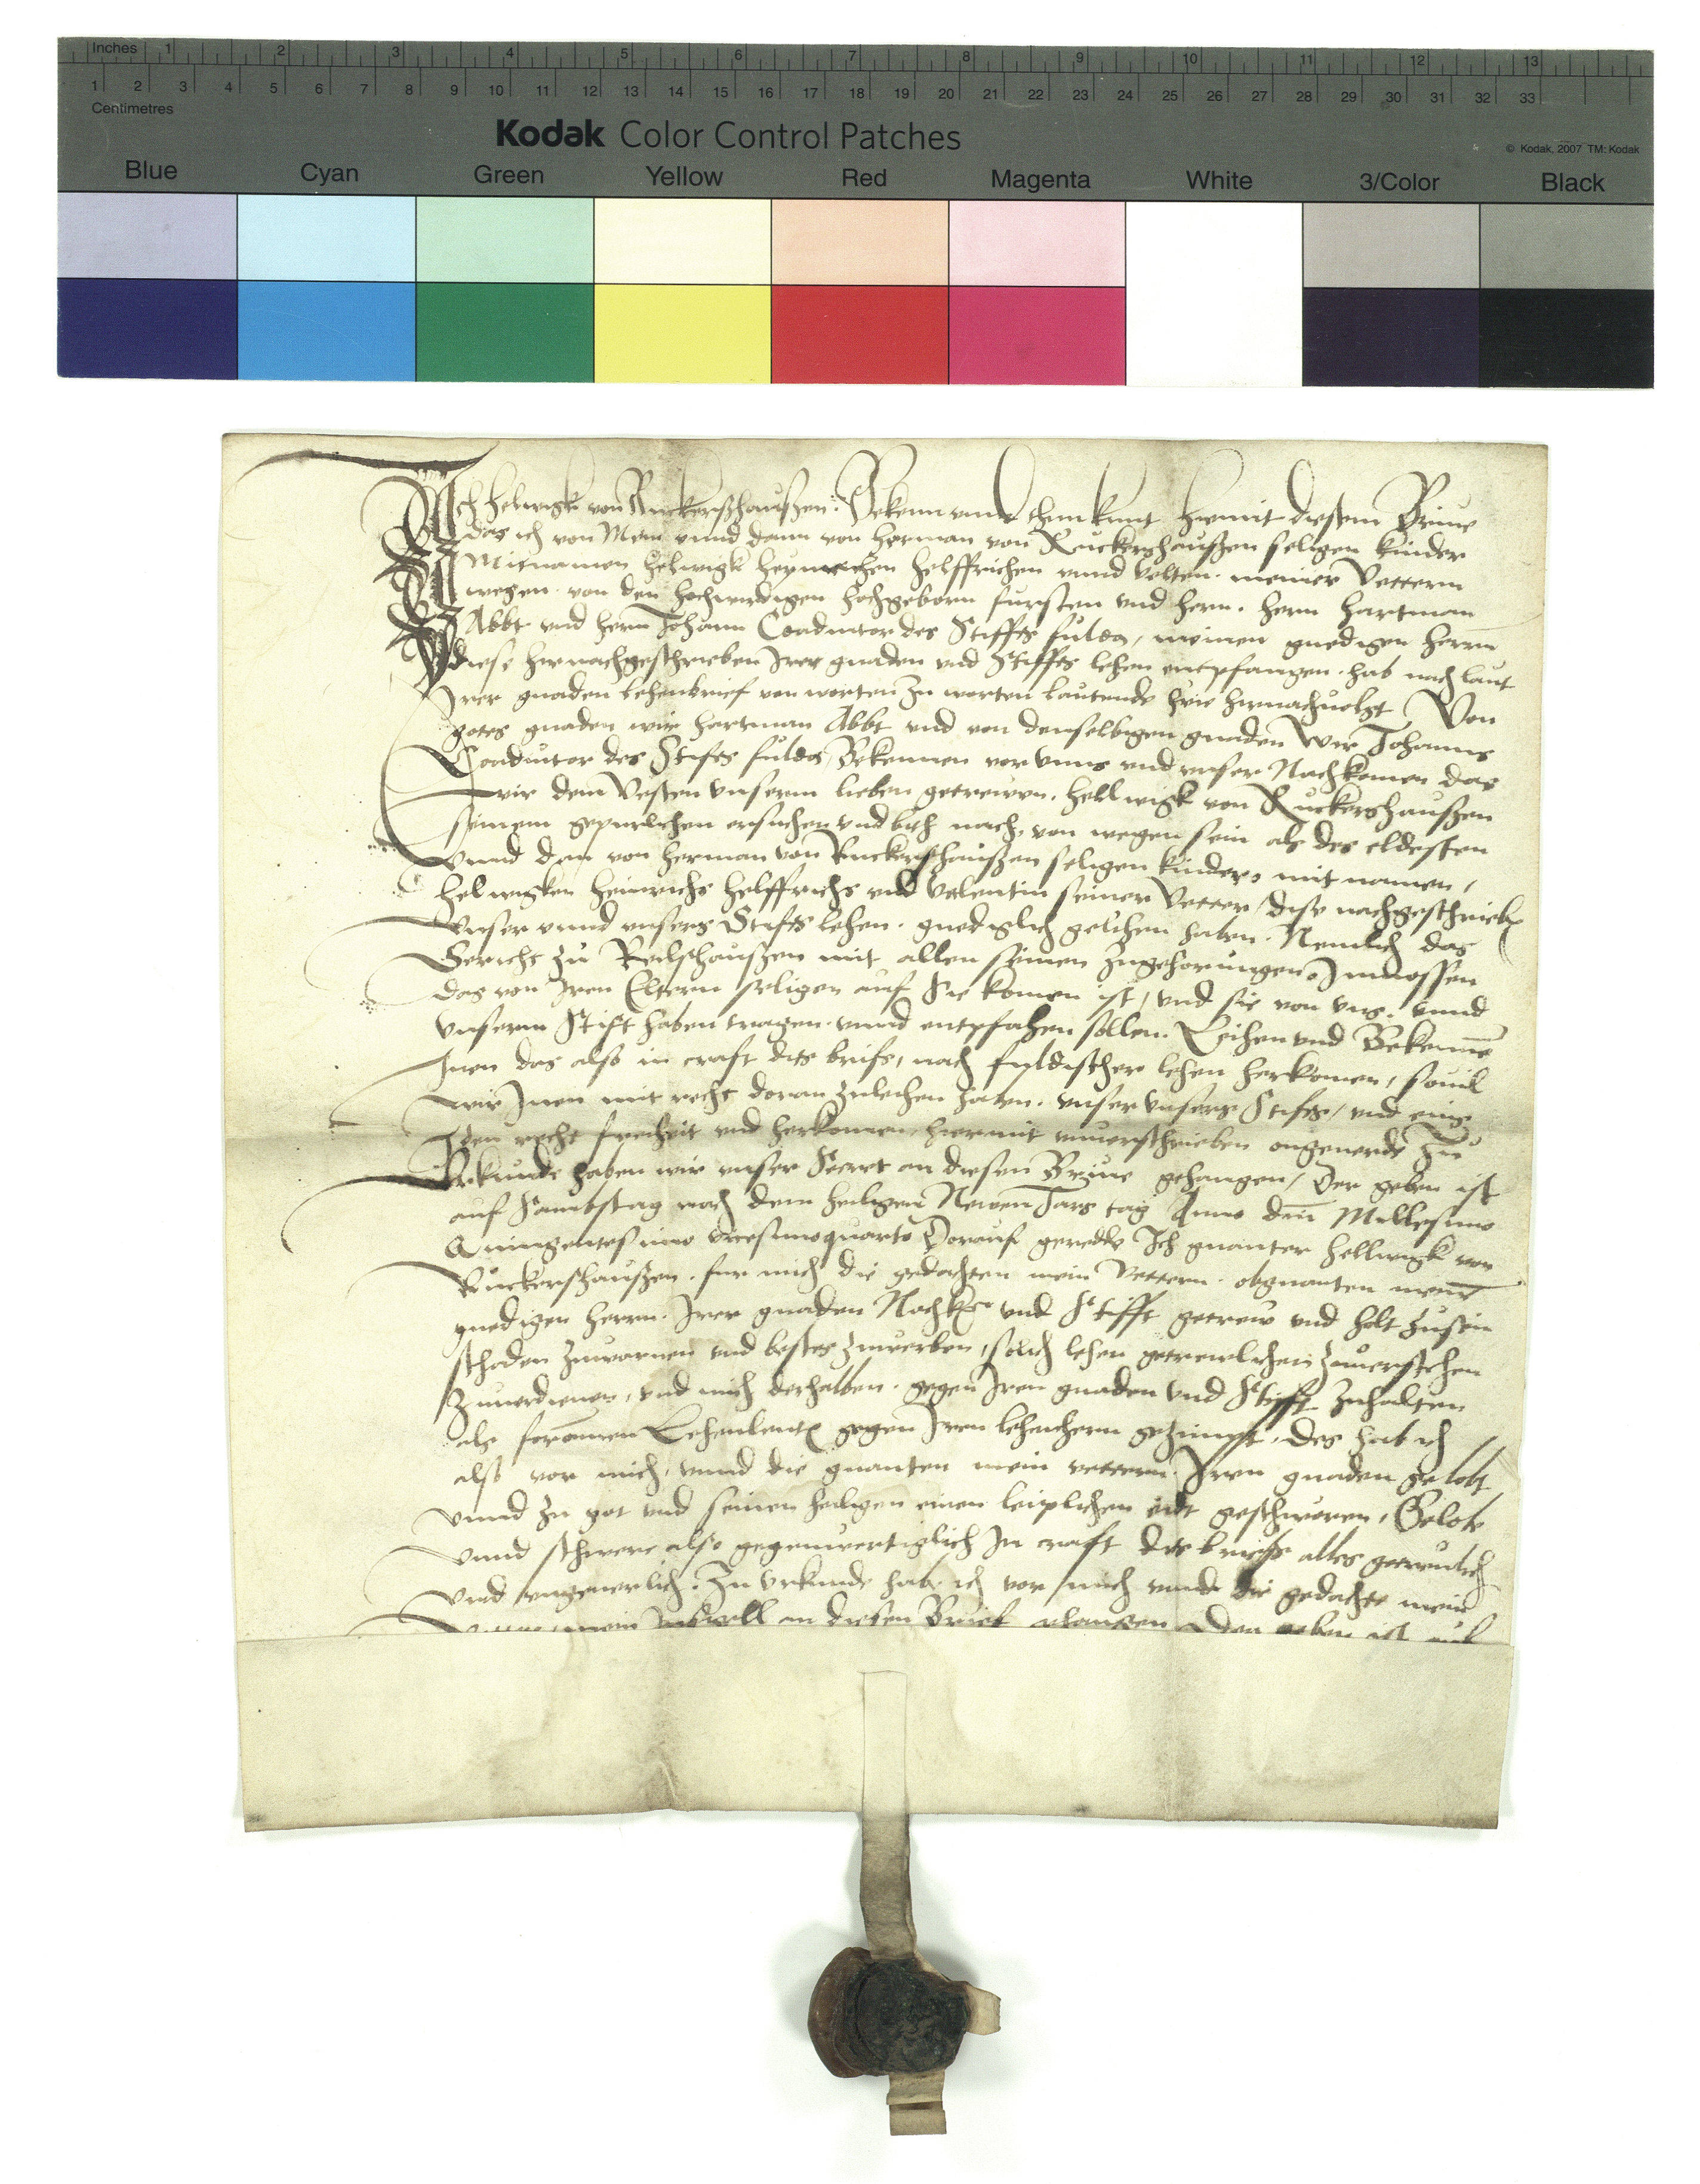 Inches 1 2 3 4 5 6 7 8 9 10 11 12 13
1 2 3 4 5 6 7 8 9 10 11 12 13 14 15 16 17 18 19 20 21 22 23 24 25 26 27 28 29 30 31 32 33
Centimetres
Kodak Color Control Patches
© Kodak, 2007 TM: Kodak
Blue Cyan Green Yellow Red Magenta White 3/Color Black
Ich Helwigk von Ruckerßhaußen. Bekenn vnnd thun kunt hiemit diesem Brieue
das ich von Mein vnnd dann von Herman von Ruckerßhaußen seligen kinder
Mitnamen Helwigk Heynrichen Helffrichen vnnd Velten. meiner Vettern
wegen. von den Hochwirdigen Hochgeborn fursten vnd Hern. Hern Hartman
Abbt vnd Hern Johann Coadiutor des Stiffts Fulda, meinen gnedigen Herrn
diese hirnachgeschrieben Irer gnaden vnd Stiffts lehen entpfangen. hab nach laut
Irer gnaden lehenbrief von worten zu worten lautende hie hirnachuolgt Von
gots gnaden wir Hartman Abbt vnd von denselbigen gnaden Wir Johanns
Coadiutor des Stifts Fulda, Bekennen vor vnns vnd vnser Nachkomen das
wir dem Vesten Vnserm lieben getrewen. Hellwigk von Ruckerßhaußen
seinem gepurlichen ersuchen vnd bith nach, von wegen sein als des eldesten
vnnd dan von Herman von Ruckerßhaußen seligen kinder, mit namen,
Helwigken Heinrichs Helffrichs vnd Valentin seiner Vetter, dise nachgeschrieben
Vnser vnnd vnsers Stifts lehen. gnediglich gelihen haben. Nemlich das
Gericht zu Reilßhaußen mit allen seinen Zugehorungen, Inmossen
das von Iren Eltern seligen auf Sie komen ist, vnd sie von vns. vnnd
vnserm Stift haben tragen. vnnd entpfahen sollen. Leihen vnd Bekenne
Inen das also in craft dits brifs, nach fuldischer lehen herkomen, souil
wir Inen mit recht doran zuleihen haben. vnser vnsers Stifts, vnd eins
Iden recht freiheit vnd herkomen hiermit vnuerschrieben ongeuerde Zu
Vrkunde haben wir vnser Secret an diesen Brieue gehangen, Der geben ist
auf Sambstag nach dem heiligen Newen Jars tag Anno dni Millesimo
Quingentesimo tricesimoquarto Dorauf geredde Ich gnanter Hellwigk von
Ruckerßhaußen. fur mich die gedachten mein Vettern. obgnanten mein
gnedigen Herrn. Irer gnaden Nachk vnd Stifft getrew vnd holt zusein
schaden zuwarnen vnd bestes zuwerben, solich lehen getrewlichen zuuersprechen
zuuerdienen, vnd mich derhalben. gegen Iren gnaden vnd Stifft zuhallten
als fromen Lehenleut gegen Iren lehenhern gezimpt. Des hab ich
also vor mich, vnnd die gnanten mein vettern. Iren gnaden gelobt
vnnd zu got vnd seinen heiligen einen leiplichen eidt geschworen, Gelobe
vnnd schwere also gegenwertiglich In craft dits briefs alles getreulich
vnd vngeuerlich. Zu Vrkunde hab ich vor mich vnnd die gedachte mein
mein an diesen Brief gehangen Der geben ist auf